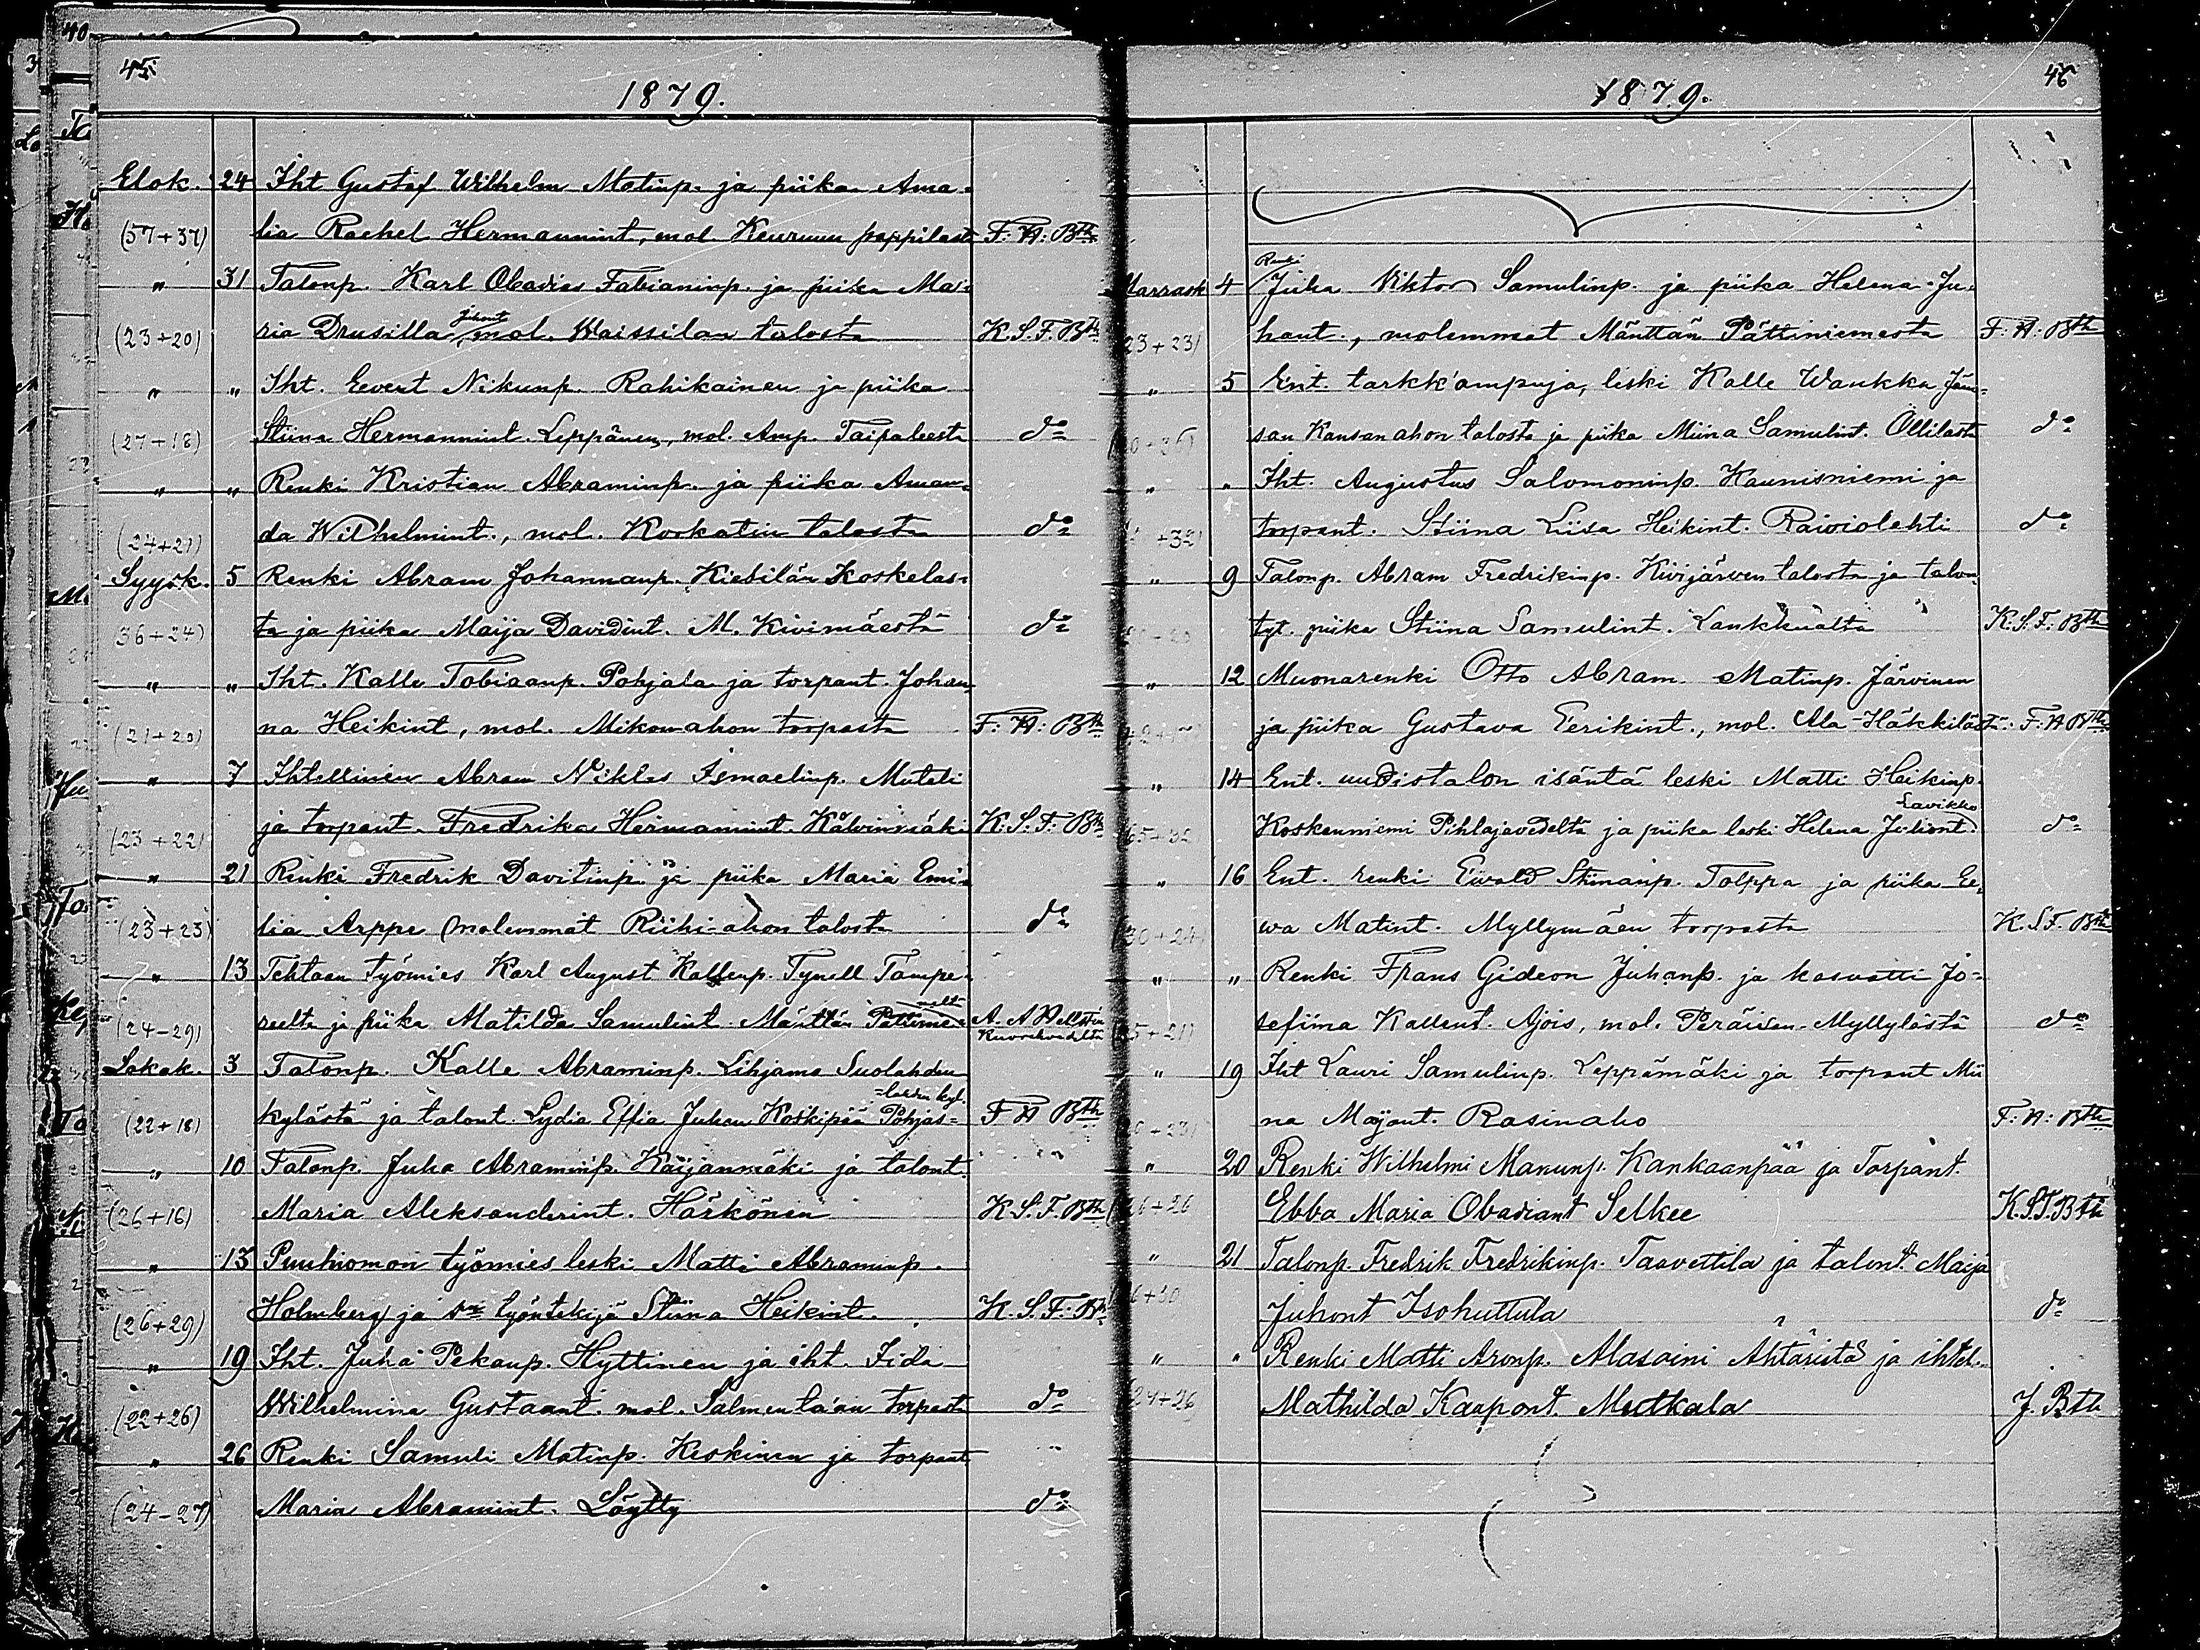 45.
1879.
Elok. 24 Iht Gustaf Wilhelm Matinp. ja piika Ama-
(57+37) lia Rachel Hermannint, mol Keuruun pappilasta F: A: Bth
" 31 Talonp. Karl Obadias Fabianinp. ja piika Ma-
juhont
(23+20) ria Drusilla, mol. Waissilan talosta K.S.F. Bth
" " Iht. Eevert Nikunp. Rahikainen ja piika
(27+18) Stiina Hermannint. Leppänen, mol. Amp. Taipaleesta do
" " Renki Kristian Abraminp. ja piika Aman-
(24+21) da Wilhelmint., mol. Korkatin talosta do
Syysk. 5 Renki Abram Johannanp. Kiebilän Koskelas-
36+24) ta ja piika Maija Davidint. M. Kivimäestä do
" " Iht. Kalle Tobiaanp. Pohjala ja torpant. Johan
(21+20) na Heikint, mol. Mikonahon torpasta F: A: Bth
" 7 Ihtellinen Abram Niklas Ismaelinp. Muteli
(23+22) ja torpant. Fredrika Hermannint. Kalvinmäki K.S.F. Bth
" 21 Renki Fredrik Davitinp. ja piika Maria Emi-
(23+23) lia Arppe molemmat Riihi-ahon talosta do
" 13 Tehtaan työmies Karl August Kallenp. Tynell Tampe-
(24-29) reelta ja piika Matilda Samulint. Mänttän A. A Hellstén
Kuorehvedeltä
Lokak. 3 Talonp. Kalle Abraminp. Lihjamo Suolahden
=lahden kyl.
(22+18) kylästä ja talont. Lydia Effia Juhan Koskipää Pohjas= F A Bth
" 10 Talonp. Juho Abraminp. Kaijanmäki ja talont.
(26+16) Maria Aleksanderint. Härkönen K.S.F. Bth
" 13 Puuhiomon työmies leski Matti Abraminp.
(26+29) Holmberg ja do työntekijä Stiina Heikint. K.S.F. Bth
" 19 Iht. Juha Pekanp. Hyttinen ja iht. Iida
(22+26) Wilhelmina Gustaant. mol. Salmentaan torpasta do
" 26 Renki Samuli Matinp. Keskinen ja torpant
(24-27) Maria Abramint. Löytty do
46
1879.
Renki
Marrask 4 Juha Viktor Samulinp. ja piika Helena Ju-
23+23) hant., molemmat Mänttän Pättiniemestä F: A: Bth
" 5 Ent. tarkk'ampuja, leski Kalle Waukka Jäm-
sän Kansanahon talosta ja piika Miina Samulint. Ollilasta do
" " Iht. Augustus Salomoninp. Kaunisniemi ja
+32) torpant. Stiina Liisa Heikint. Raiviolehti do
" 9 Talonp. Abram Fredrikinp. Kivijärven talosta ja talon
tyt. piika Stiina Samulint. Lankkuälta K.S.F. Bth
" 12 Muonarenki Otto Abram Matinp. Järvinen
ja piika Gustava Eerikint., mol. Ala-Häkkilästä. F: A Bth
" 14 Ent. uudistalon isäntä leski Matti Heikinp.
Lavikko
65+32 Koskenniemi Pihlajavedeltä ja piika leski Helena Juliant. do
" 16 Ent. renki Eivald Stiinanp. Tolppa ja piika Ee-
30+24 wa Matint. Myllymäen torpasta K.S.F. Bth
" " Renki Frans Gideon Juhanp. ja kasvatti Jo-
25+21) sefiina Kallent. Ajois, mol. Peräisen-Myllylästä do
" 19 Iht Lauri Samulinp. Leppämäki ja torpant Mii
20+23) na Maijant. Rasinaho F: A: Bth
" 20 Renki Wilhelmi Manunp. Kankaanpää ja Torpant.
26+26 Ebba Maria Obadiant Selkee K.S.F. Bth
" 21 Talonp. Fredrik Fredrikinp. Taavettila ja talont. Maija
6+30 Juhont Isohuttula do
" " Renki Matti Aronp. Alasaini Ähtäristä ja ihtel.
24+26 Mathilda Kaapont. Mutkala J. Bth